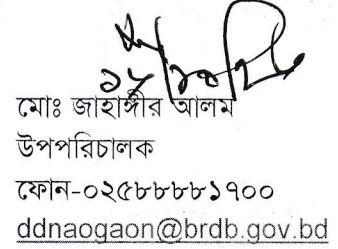 মোঃ জাহাঙ্গীর আলম
উপপরিচালক
ফোন-০২৫৮৮৮৮১৭০০
ddnaogaon@brdb.gov.bd